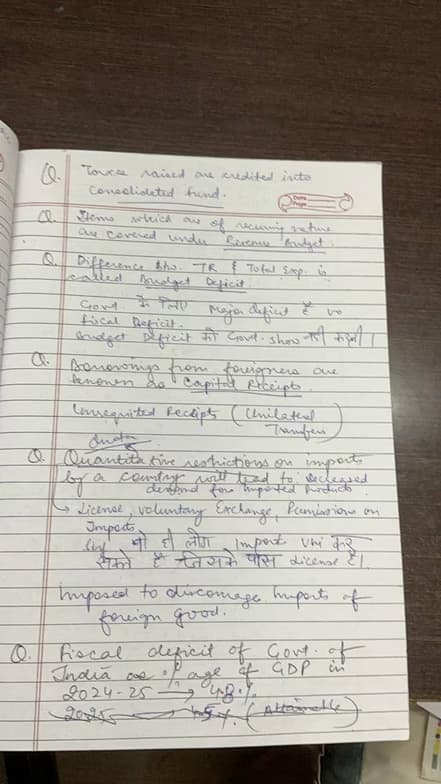 Q. Taxes raised are credited into
Consolidated fund.
Date
Page
Q. Items which are of recurring nature
are covered under Revenue Budget.
Q. Difference btw. TR & Total Exp. is
called Budget Deficit
Govt के लिए Major deficit है vo
fiscal Deficit.
Budget Deficit को Govt. show नहीं करती।
Q. Borrowings from foreigners are
known as Capital Receipts.
Unrequited Receipts (Unilateral
Transfers)
Quota
Q. Quantitative restrictions on imports
by a country will lead to decreased
demand for imported Products
↳ License, Voluntary Exchange, Permissions on
Imports
वो ही लोग import कर
सकते हैं जिनके पास License है।
Imposed to discourage Imports of
foreign Good.
Q. Fiscal deficit of Govt. of
India as % age of GDP in
2024-25 → 4.8%
2025 → 4.5%. (Attainable)